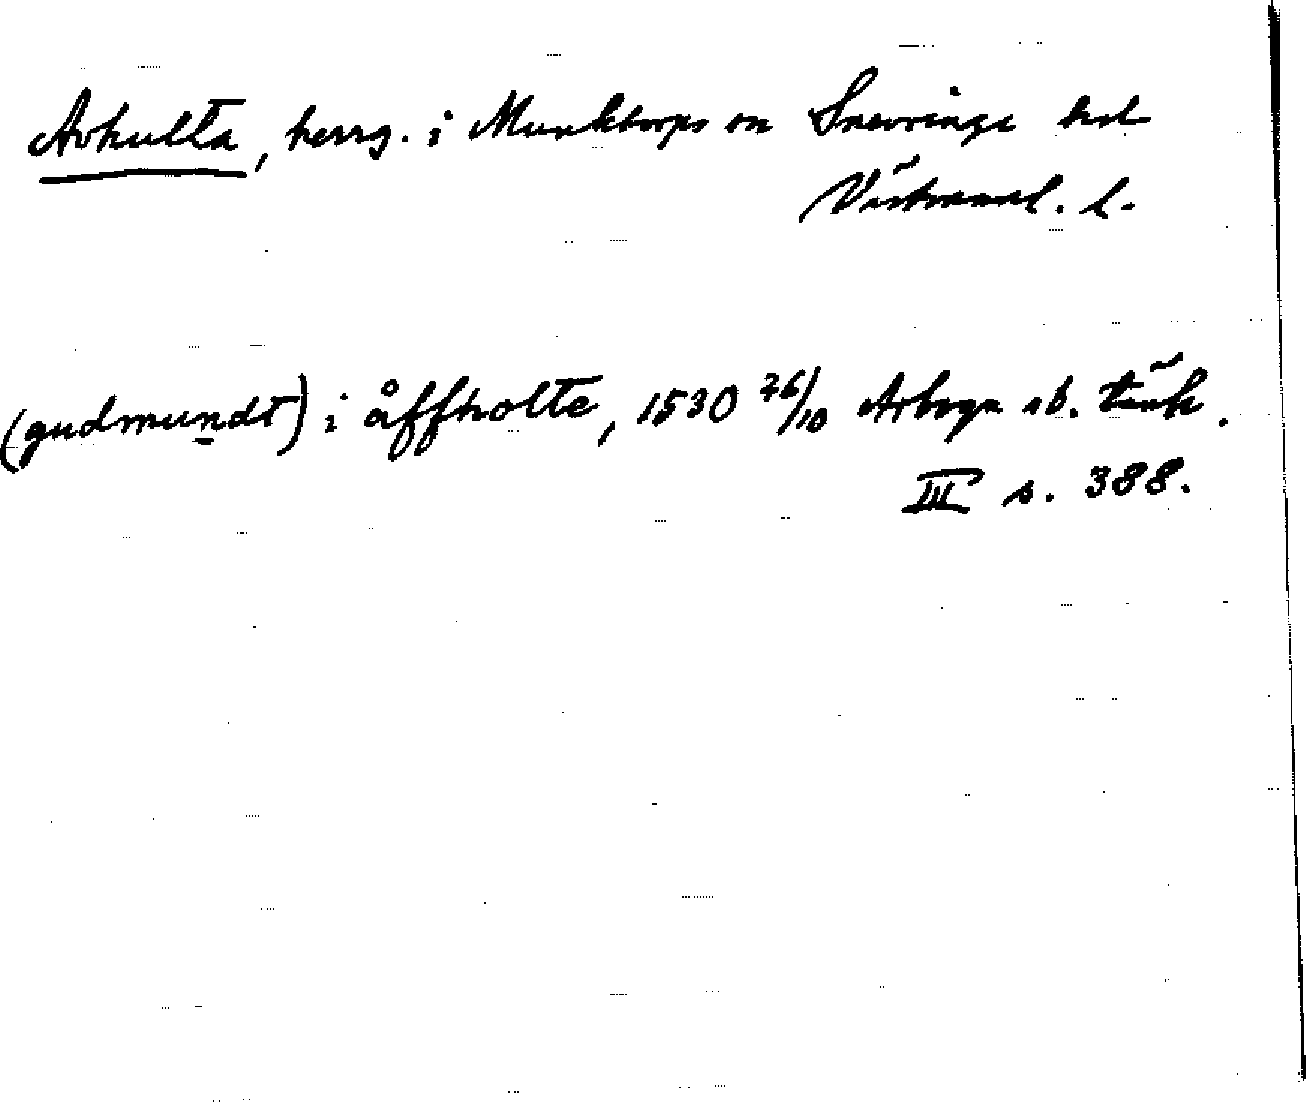 Avhulta, herrg. i Munktorps sn Snevringe hd
Västmanl. l.
(gudmundt) i åffholte, 1530 26/10 Arboga sb. tänk.
III s. 388.